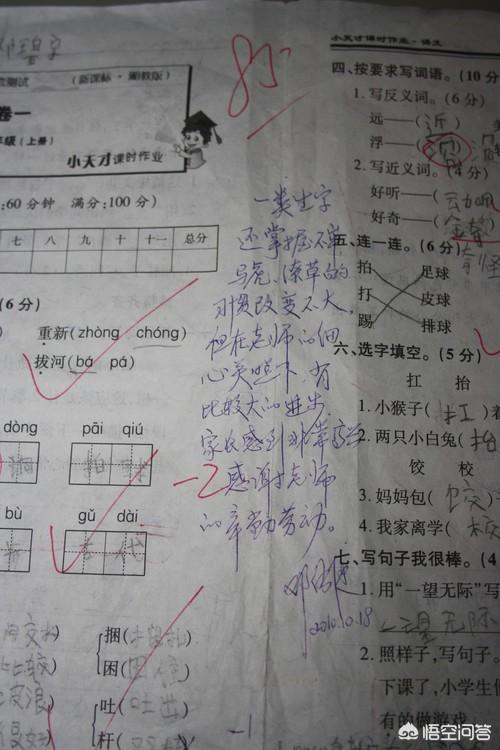 85
(新课标·湘教版)
卷一
年级(上册)
小天才课时作业
:60分钟 满分:100分)
七 八 九 十 十一 总分
(6分)
重新(zhòng chóng)
拔河(bá pá)
dòng pāi qiú
拍球
bù gǔ dài
古代
捆(
困(
吐(吐出
杆(
-1
一类生字
还掌握不牢,
马虎、潦草的
习惯改变不大,
但在老师的细
心关照下,有
比较大的进步,
家长感到非常高兴
-2
感谢老师
的辛勤劳动。
2010.10.18
小天才课时作业·语文
四、按要求写词语。(10分
1.写反义词。(6分)
远——(近)
浮——(沉
2.写近义词。(4分)
好听——(
好奇——(
五、连一连。(6分)
拍 足球
打 皮球
踢 排球
六、选字填空。(5分)
扛 抬
1.小猴子(扛)
2.两只小白兔(抬
饺 校
3.妈妈包(饺)
4.我家离学(校
七、写句子我很棒。(
1.用“一望无际”写
一望无际
2.照样子,写句子。
下课了,小学生们
有的做游戏
悟空问答